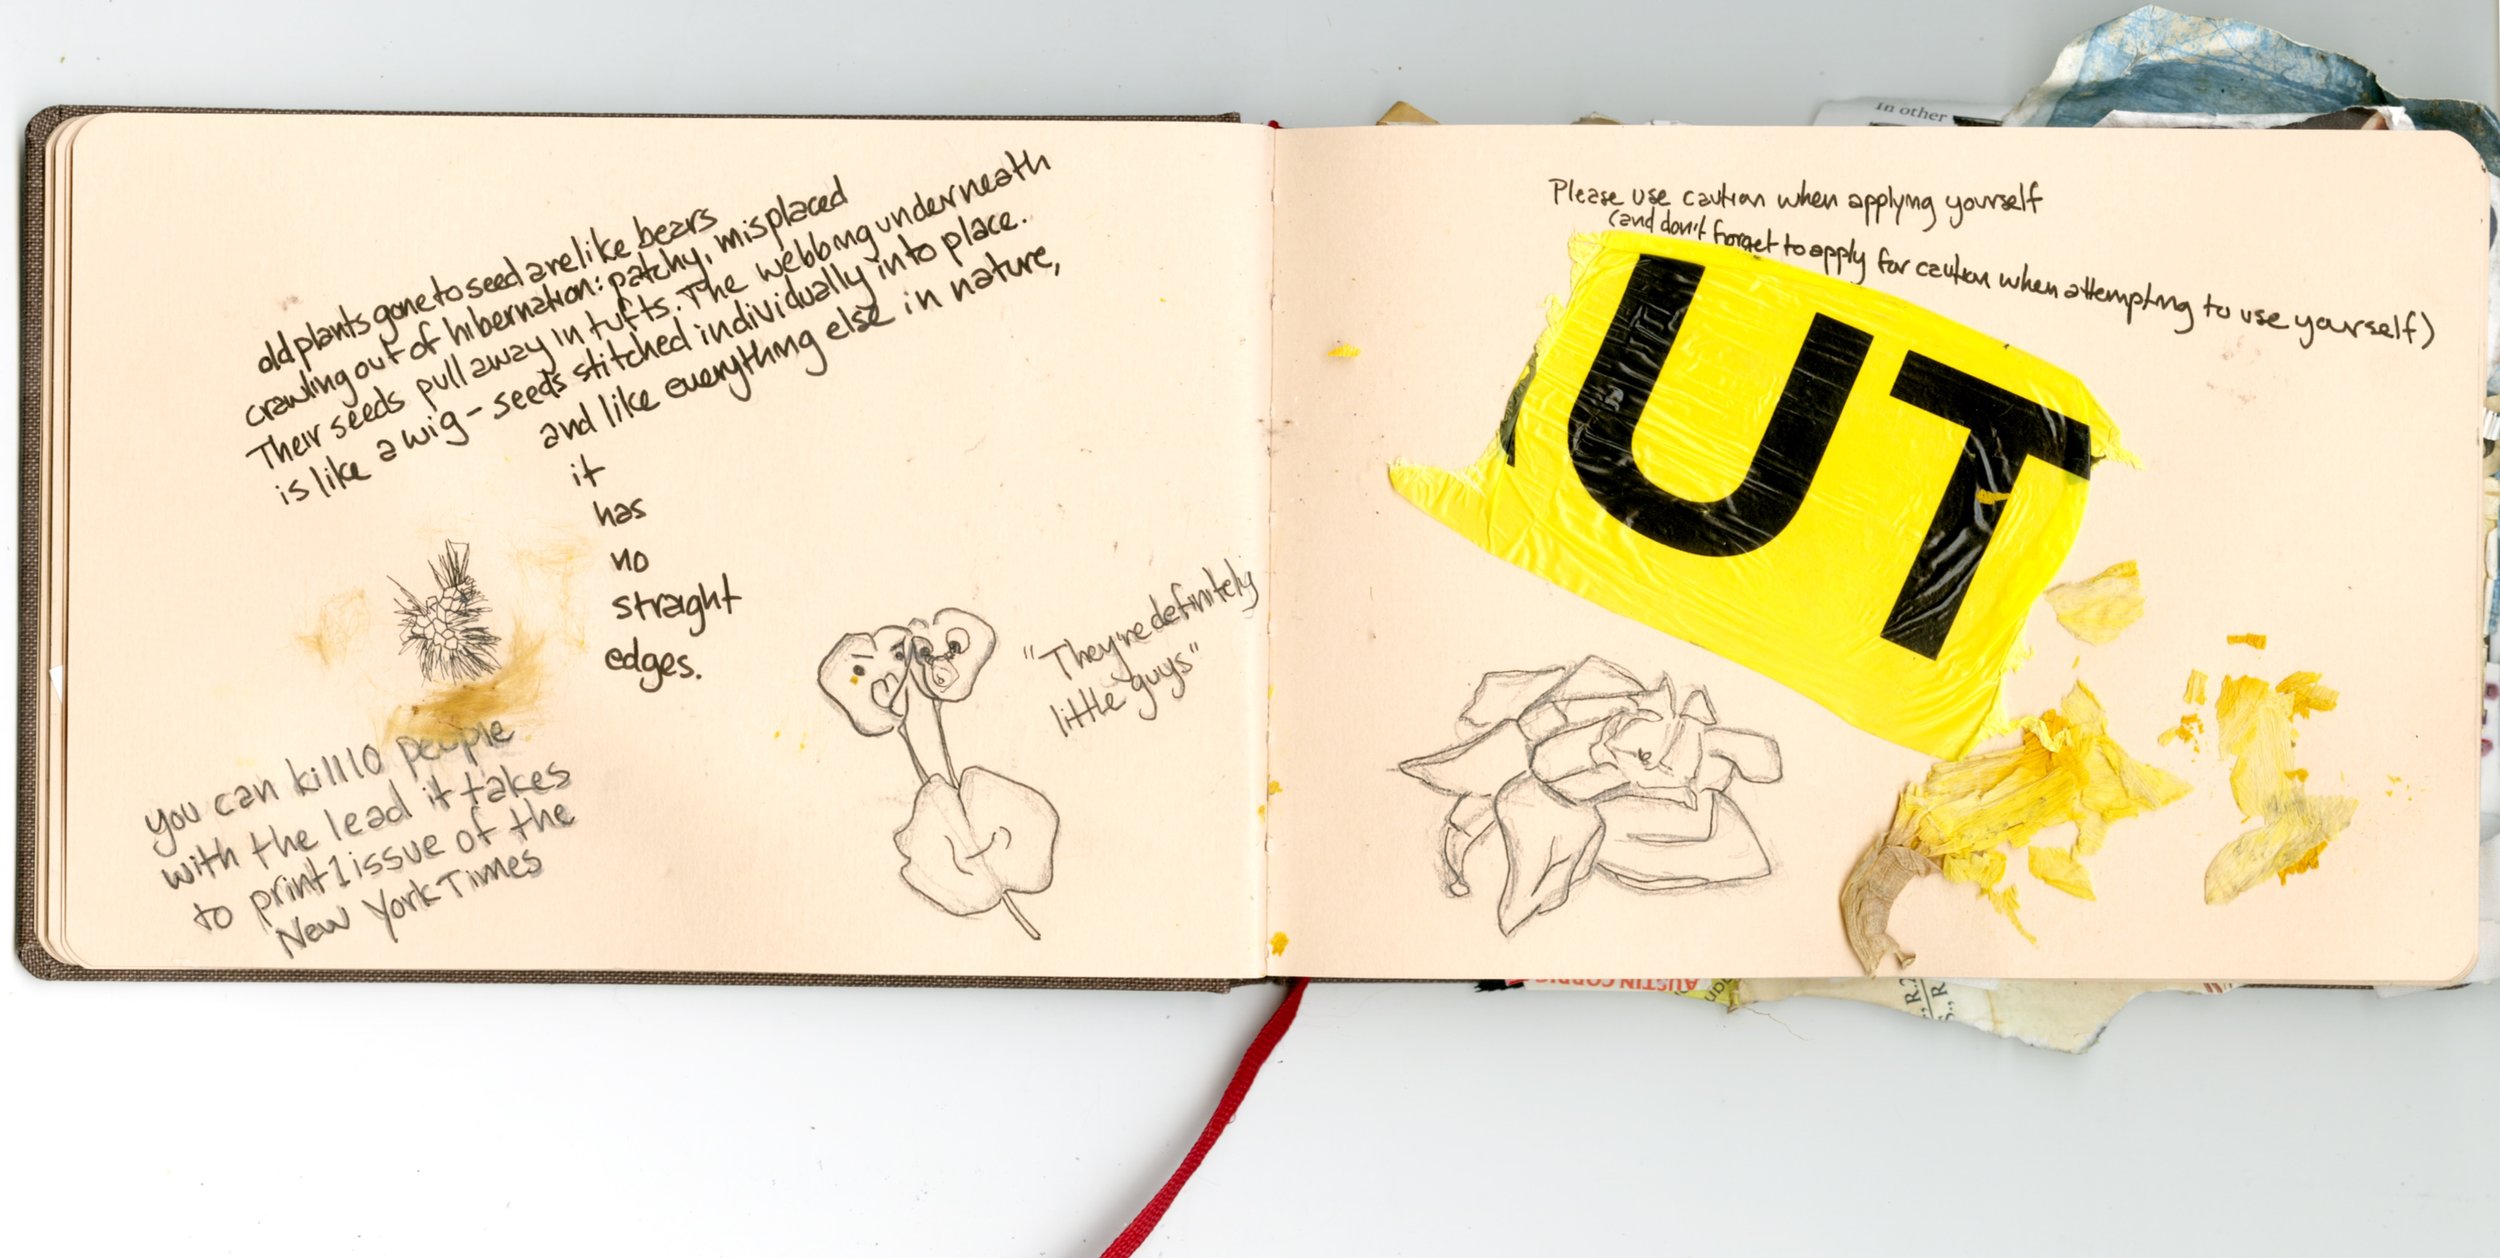 old plants gone to seed are like bears
crawling out of hibernation: patchy, misplaced
Their seeds pull away in tufts. The webbing underneath
is like a wig - seeds stitched individually into place.
and like everything else in nature,
it
has
no
straight
edges.
you can kill 10 people
with the lead it takes
to print 1 issue of the
New York Times
"They're definitely
little guys"
In other
Please use caution when applying yourself
(and don't forget to apply for caution when attempting to use yourself)
UT
AUSTIN